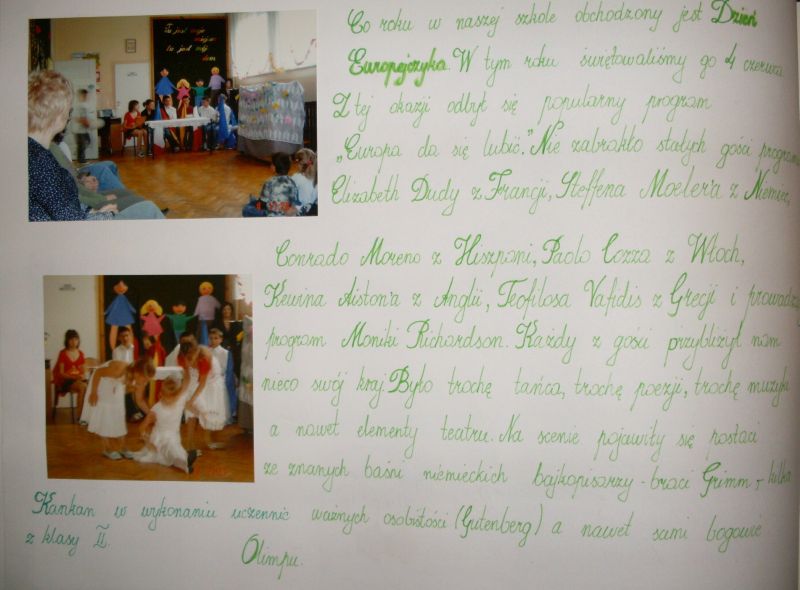 Tu jest moje
miejsce
tu jest mój
dom
Co roku w naszej szkole obchodzony jest Dzień
Europejczyka. W tym roku świętowaliśmy go 4 czerwca.
Z tej okazji odbył się popularny program
„Europa da się lubić." Nie zabrakło stałych gości programu
Elizabeth Dudy z Francji, Steffena Moeler'a z Niemiec,
Conrado Moreno z Hiszpani, Paolo Cozza z Włoch,
Kewina Aiston'a z Anglii, Teofilosa Vafidis z Grecji i prowadzą
program Moniki Richardson. Każdy z gości przybliżył nam
nieco swój kraj. Było trochę tańca, trochę poezji, trochę muzyki
a nawet elementy teatru. Na scenie pojawiły się postaci
ze znanych baśni niemieckich bajkopisarzy - braci Grimm + kilka
ważnych osobistości (Gutenberg) a nawet sami bogowie
Olimpu.
Kankan w wykonaniu uczennic
z klasy II.